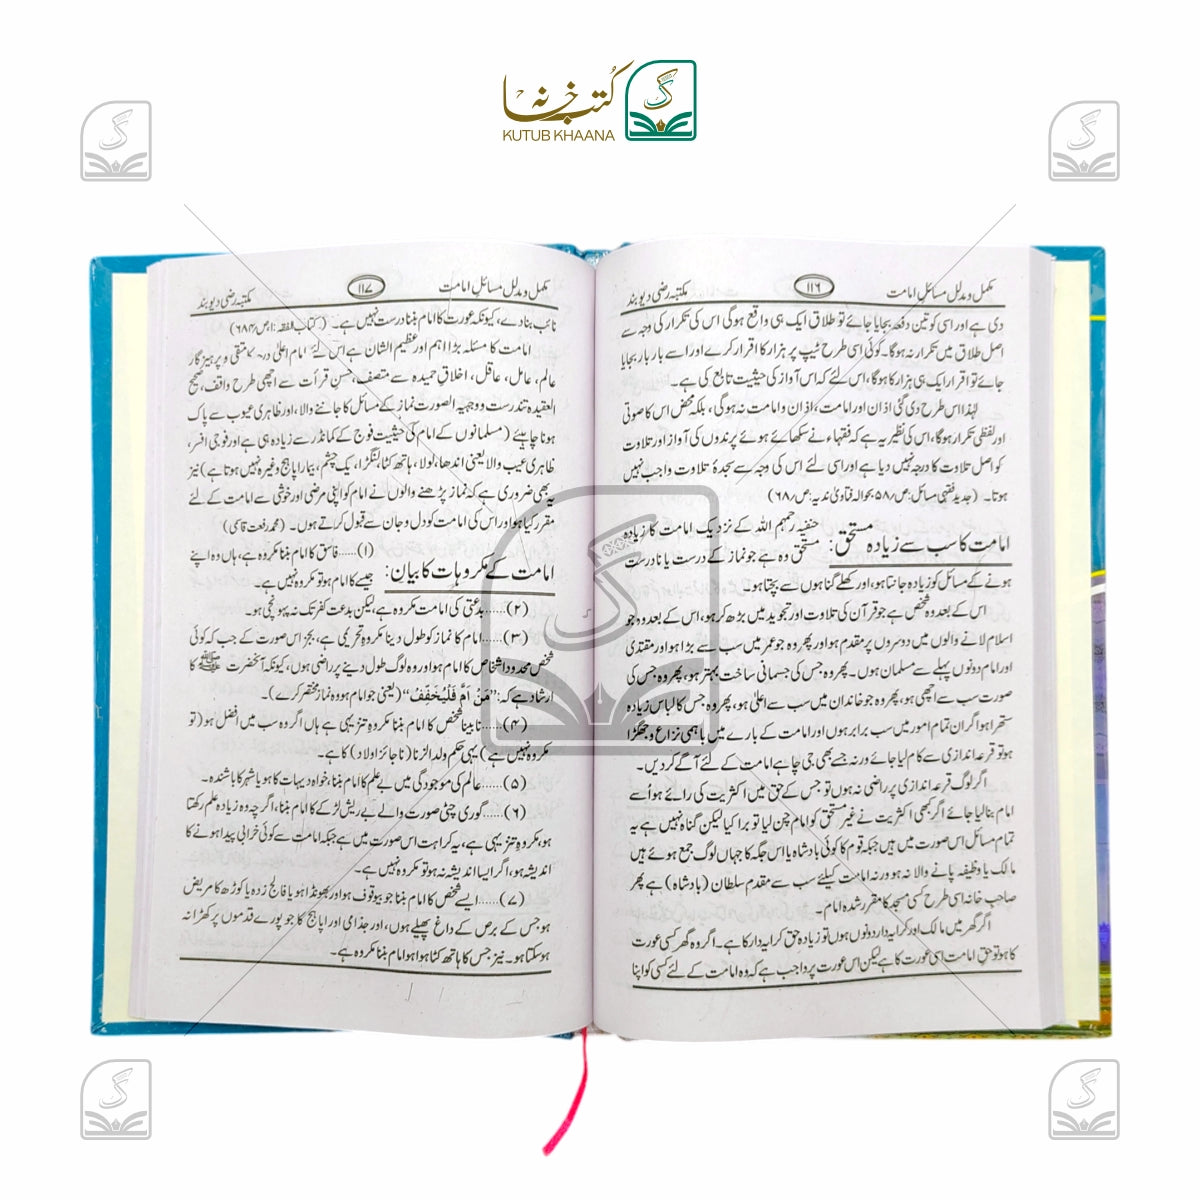 کتب خانہ
KUTUB KHAANA
مکمل و مدلل مسائل امامت ۱۱۶ مکتبہ رضی دیوبند
دی ہے اور اسی کو تین دفعہ بجایا جائے تو طلاق ایک ہی واقع ہوگی اس کی تکرار کی وجہ سے
اصل طلاق میں تکرار نہ ہوگا۔ کوئی اسی طرح ٹیپ پر ہزار کا اقرار کرے اور اسے بار بار بجایا
جائے تو اقرار ایک ہی ہزار کا ہوگا، اس لئے کہ اس آواز کی حیثیت تابع کی ہے۔
لہٰذا اس طرح دی گئی اذان اور امامت، اذان و امامت نہ ہوگی، بلکہ محض اس کا صوتی
اور لفظی تکرار ہوگا، اس کی نظیر یہ ہے کہ فقہاء نے سکھائے ہوئے پرندوں کی آواز اور تلاوت
کو اصل تلاوت کا درجہ نہیں دیا ہے اور اسی لئے اس کی وجہ سے سجدۂ تلاوت واجب نہیں
ہوتا۔ (جدید فقہی مسائل: ص/۵۸ بحوالہ فتاویٰ ندیہ: ص/۶۸)
امامت کا سب سے زیادہ مستحق: حنفیہ رحمہم اللہ کے نزدیک امامت کا زیادہ
مستحق وہ ہے جو نماز کے درست یا نادرست
ہونے کے مسائل کو زیادہ جانتا ہو، اور کھلے گناہوں سے بچتا ہو۔
اس کے بعد وہ شخص ہے جو قرآن کی تلاوت اور تجوید میں بڑھ کر ہو، اس کے بعد وہ جو
اسلام لانے والوں میں دوسروں پر مقدم ہو اور پھر وہ جو عمر میں سب سے بڑا ہو اور مقتدی
اور امام دونوں پہلے سے مسلمان ہوں۔ پھر وہ جس کی جسمانی ساخت بہتر ہو، پھر وہ جس کی
صورت سب سے اچھی ہو، پھر وہ جو خاندان میں سب سے اعلیٰ ہو، پھر وہ جس کا لباس زیادہ
ستھرا ہو اگر ان تمام امور میں سب برابر ہوں اور امامت کے بارے میں باہمی نزاع و جھگڑا
ہو تو قرعہ اندازی سے کام لیا جائے ورنہ جسے بھی جی چاہے امامت کے لئے آگے کردیں۔
اگر لوگ قرعہ اندازی پر راضی نہ ہوں تو جس کے حق میں اکثریت کی رائے ہو اُسے
امام بنالیا جائے اگر کبھی اکثریت نے غیر مستحق کو امام چن لیا تو برا کیا لیکن گناہ نہیں ہے یہ
تمام مسائل اس صورت میں ہیں جبکہ قوم کا کوئی بادشاہ یا اس جگہ کا جہاں لوگ جمع ہوئے ہیں
مالک یا وظیفہ پانے والا نہ ہو ورنہ امامت کیلئے سب سے مقدم سلطان (بادشاہ) ہے پھر
صاحب خانہ اسی طرح کسی مسجد کا مقرر شدہ امام۔
اگر گھر میں مالک اور کرایہ دار دونوں ہوں تو زیادہ حق کرایہ دار کا ہے۔ اگر وہ گھر کسی عورت
کا ہو تو حق امامت اسی عورت کا ہے لیکن اس عورت پر واجب ہے کہ وہ امامت کے لئے کسی کو اپنا
مکمل و مدلل مسائل امامت ۱۱۷ مکتبہ رضی دیوبند
نائب بنا دے، کیونکہ عورت کا امام بننا درست نہیں ہے۔ (کتاب الفقہ: ۱، ص/۶۸۴)
امامت کا مسئلہ بڑا اہم اور عظیم الشان ہے اس لئے امام اعلیٰ درجہ کا متقی و پرہیزگار
عالم، عامل، عاقل، اخلاق حمیدہ سے متصف، حسن قرأت سے اچھی طرح واقف، صحیح
العقیدہ تندرست و وجیہہ الصورت نماز کے مسائل کا جاننے والا، اور ظاہری عیوب سے پاک
ہونا چاہیئے (مسلمانوں کے امام کی حیثیت فوج کے کمانڈر سے زیادہ ہی ہے اور فوجی افسر،
ظاہری عیب والا یعنی اندھا، لولا، ہاتھ کٹا، لنگڑا، یک چشم، بیمار اپاہج وغیرہ نہیں ہوتا ہے) نیز
یہ بھی ضروری ہے کہ نماز پڑھنے والوں نے امام کو اپنی مرضی اور خوشی سے امامت کے لئے
مقرر کیا ہو اور اس کی امامت کو دل و جان سے قبول کرتے ہوں۔ (محمد رفعت قاسمی)
امامت کے مکروہات کا بیان: (۱)..... فاسق کا امام بننا مکروہ ہے، ہاں وہ اپنے
جیسے کا امام ہو تو مکروہ نہیں ہے۔
(۲)..... بدعتی کی امامت مکروہ ہے، لیکن بدعت کفر تک نہ پہونچی ہو۔
(۳)..... امام کا نماز کو طول دینا مکروہ تحریمی ہے، بجز اس صورت کے جب کہ کوئی
شخص محدود اشخاص کا امام ہو اور وہ لوگ طول دینے پر راضی ہوں، کیونکہ آنحضرت ﷺ کا
ارشاد ہے کہ: "مَنْ اَمَّ فَلْیُخَفِّفْ" (یعنی جو امام ہو وہ نماز مختصر کرے)۔
(۴)..... نابینا شخص کا امام بننا مکروہ تنزیہی ہے ہاں اگر وہ سب میں افضل ہو (تو
مکروہ نہیں ہے) یہی حکم ولد الزنا (ناجائز اولاد) کا ہے۔
(۵)..... عالم کی موجودگی میں بے علم کا امام بننا، خواہ دیہات کا ہو یا شہر کا باشندہ۔
(۶)..... گوری چٹی صورت والے بے ریش لڑکے کا امام بننا، اگرچہ وہ زیادہ علم رکھتا
ہو، مکروہ تنزیہی ہے، یہ کراہت اس صورت میں ہے جبکہ امامت سے کوئی خرابی پیدا ہونے کا
اندیشہ ہو، اگر ایسا اندیشہ نہ ہو تو مکروہ نہیں ہے۔
(۷)..... ایسے شخص کا امام بننا جو بیوقوف ہو اور بھونڈا ہو یا فالج زدہ یا کوڑھ کا مریض
ہو، جس کے برص کے داغ پھیلے ہوں، اور جذامی اور اپاہج کا جو پورے قدموں پر کھڑا نہ
ہو سکتا ہو۔ نیز جس کا ہاتھ کٹا ہوا ہو امام بننا مکروہ ہے۔